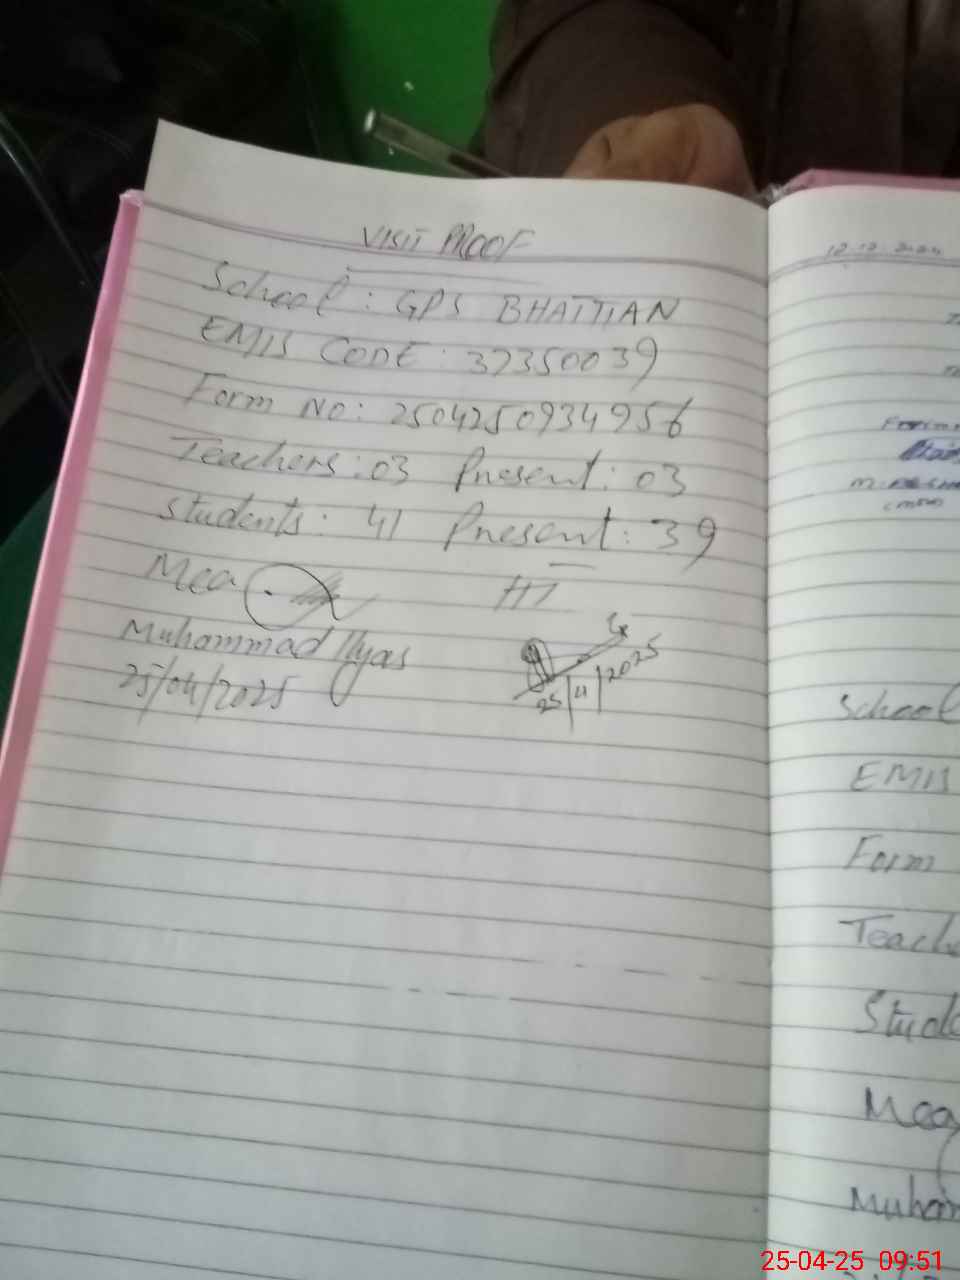 VISIT PROOF
School: GPS BHATTIAN
EMIS CODE: 37350039
Form No: 2504250934956
Teachers: 03 Present: 03
Students: 41 Present: 39
Mea
HT
Muhammad Ilyas
25/04/2025
25/4/2025
12.12.2024
School
EMIS
Form
Teache
Stude
Mea
Muham
25-04-25 09:51